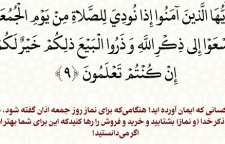 يُّهَا الَّذِينَ آمَنُوا إِذَا نُودِيَ لِلصَّلَاةِ مِنْ يَوْمِ الْجُمُعَ
سْعَوْا إِلَى ذِكْرِ اللَّهِ وَ ذَرُوا الْبَيْعَ ذَلِكُمْ خَيْرٌ لَكُمْ
إِنْ كُنْتُمْ تَعْلَمُونَ ﴿٩﴾
کسانی که ایمان آورده اید! هنگامی‌که برای نماز روز جمعه اذان گفته شود،
ذکر خدا (و نماز) بشتابید و خرید و فروش را رها کنید که این برای شما بهتر ا
اگر می‌دانستید!